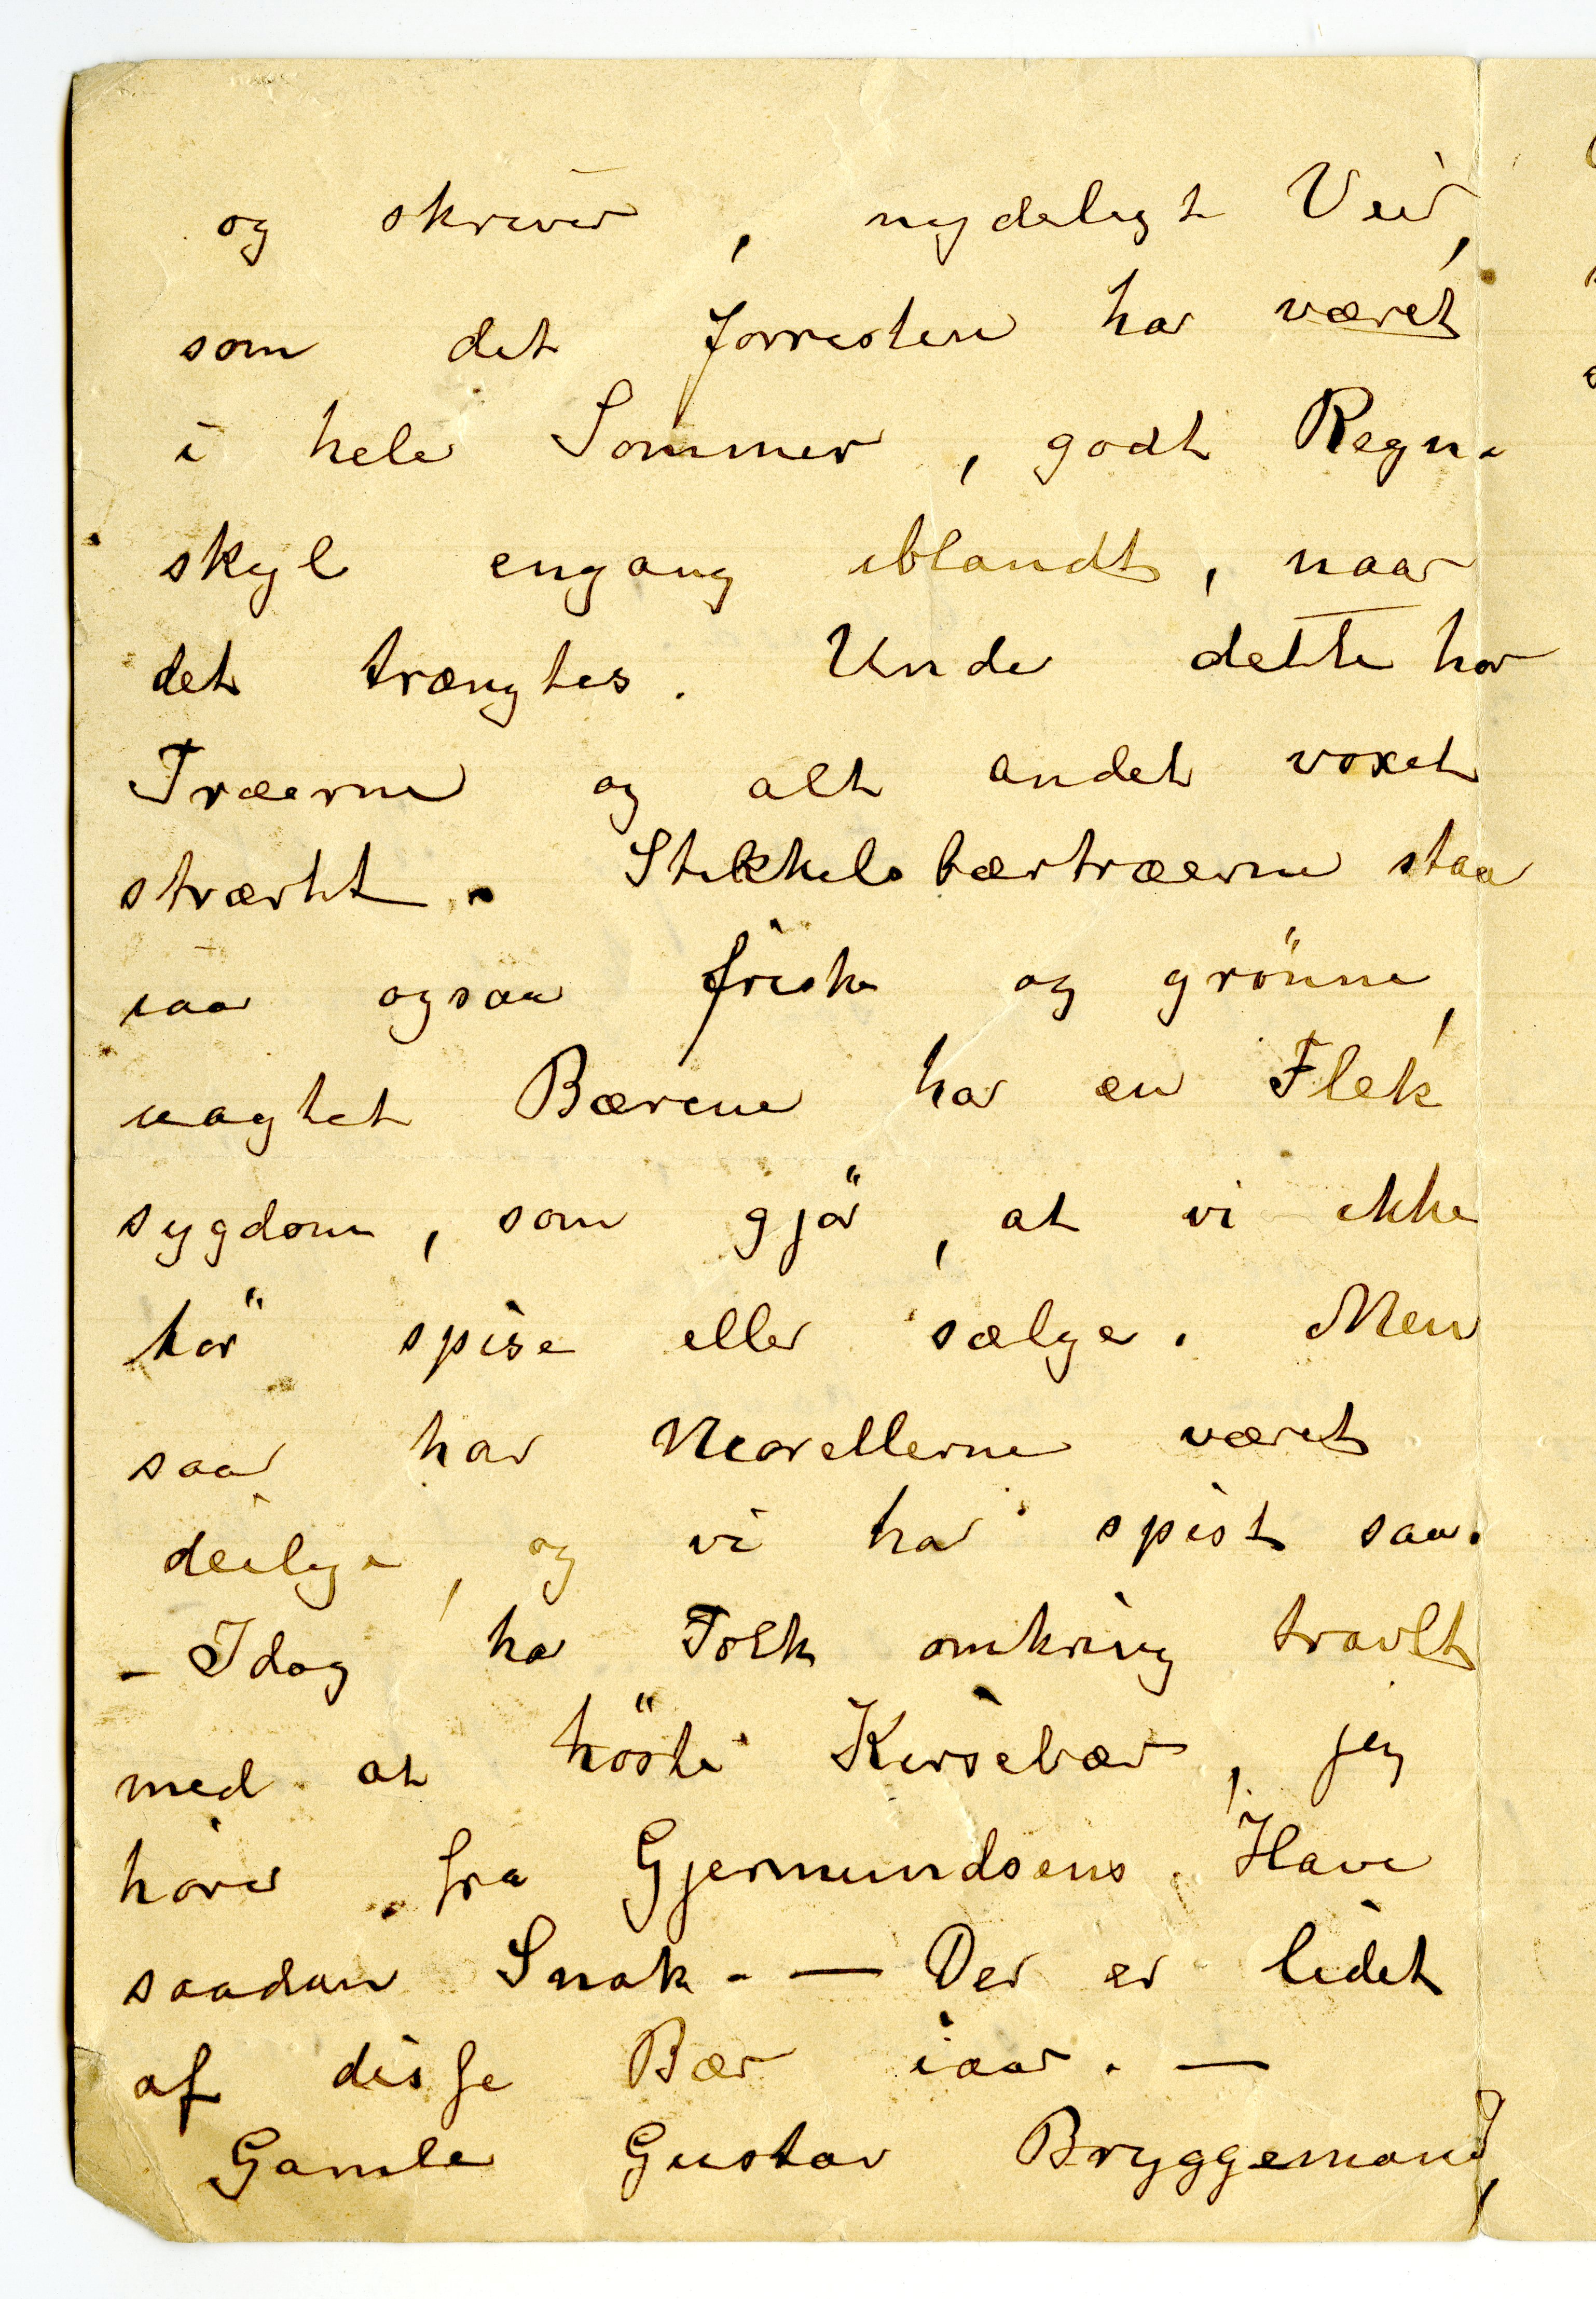 og skriver, nydeligt Veir,
som det forresten har været
i hele Sommer, godt Regn-
skyl engang iblandt, naar
det trængtes. Under dette har
Træerne og alt andet voxet
stærkt. Stikkelsbærtræerne staar
iaar ogsaa friske og grönne,
uagtet Bærene har en Flek
sygdom, som gjör, at vi ikke
bör spise eller sælge. Men
saa har Morellerne været
deilige, og vi har spist saa.
- Idag har Folk omkring travlt
med at höste Kirsebær, jeg
hörer fra Gjermundsens Have
saadan Snak. — Der er lidet
af disse Bær iaar. —
Gamle Gustav Bryggemand,